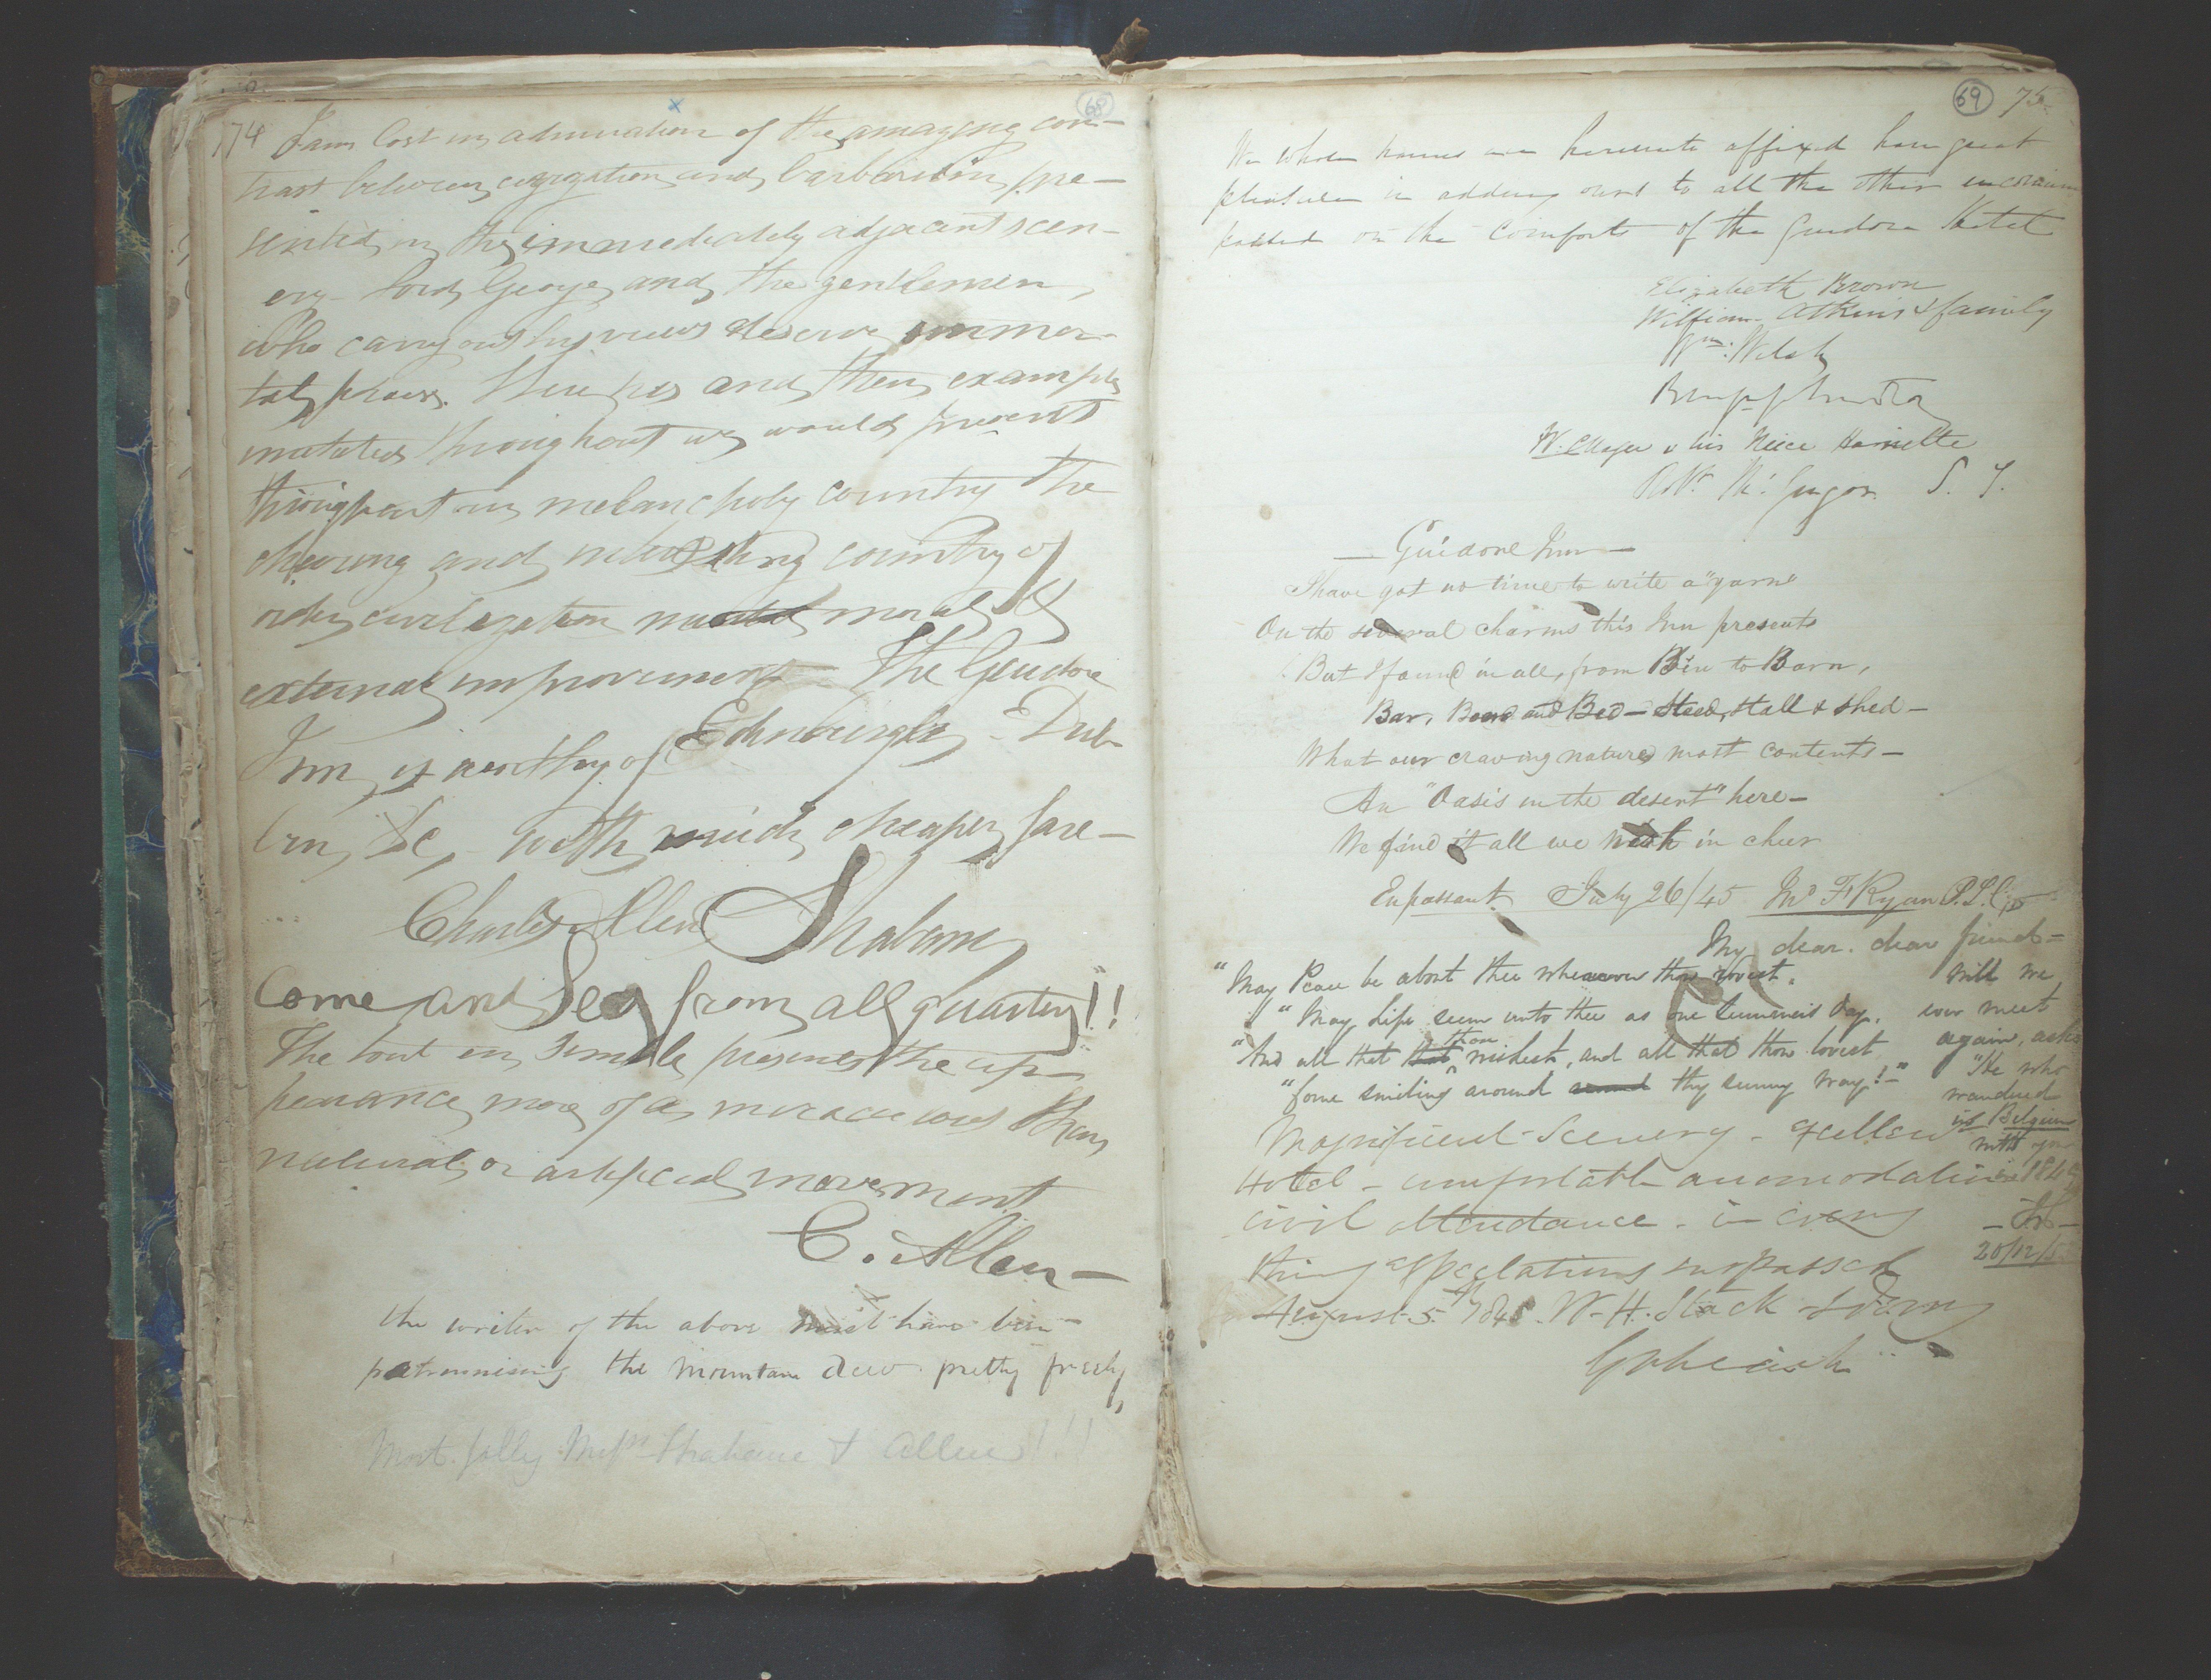 74
68
I am lost in admiration of the amazing con-
trast between civilization and barbarism pre-
sented in the immediately adjacent scen-
ery - Lord George and the gentlemen
who carry out his views deserve immor-
tal praise. Were his and their example
imitated throughout we would present
throughout our melancholy country the
cheering and interesting country of
order civilization moral &
external improvement - The Guidore
Inn is worthy of Edinburgh - Dub-
lin, &c, - with much cheaper fare -
Charles Allen Strabane
Come and See from all quarters!!
The tout en semble presents the ap-
pearance more of a miraculous than
natural or artificial movement
C. Allen -
the writer of the above must have been
patronnising the mountain dew pretty freely
Most jolly Strabane & Allen!!!
69
75
We whose names are hereunto affixed have great
pleasure in adding ours to all the other encomiums
passed on the comforts of the Guidore Hotel
Elizabeth Brown
William Atkins & family
Wm. Welsh
W. & his Niece Harriette
Robt. McGregor S. F.
- Guidore Inn -
I have got no time to write a "yarn"
On the several charms this Inn presents
But I found in all, from Bin to Barn,
Bar, Board and Bed - Steed, stall & shed -
What our craving natures most contents -
An "Oasis in the desert" here -
We find it all we wish in cheer
En passant July 26/45 F Ryan
My dear. dear friend -
"May Peace be about thee wherever thou rovest.
will we
"May Life seem unto thee as one Summer's day.
ever meet
"And all that that thou wishest, and all that thou lovest
again, asks
"Come smiling around around thy sunny way!-"
"He who
wandered
in Belgium
with you
Magnificent Scenery - excellent
Hotel - comfortable accomodation
in 184
civil attendance - in every
thing expectations surpassed
20/12/
August 5th 1845. W. H. Stack